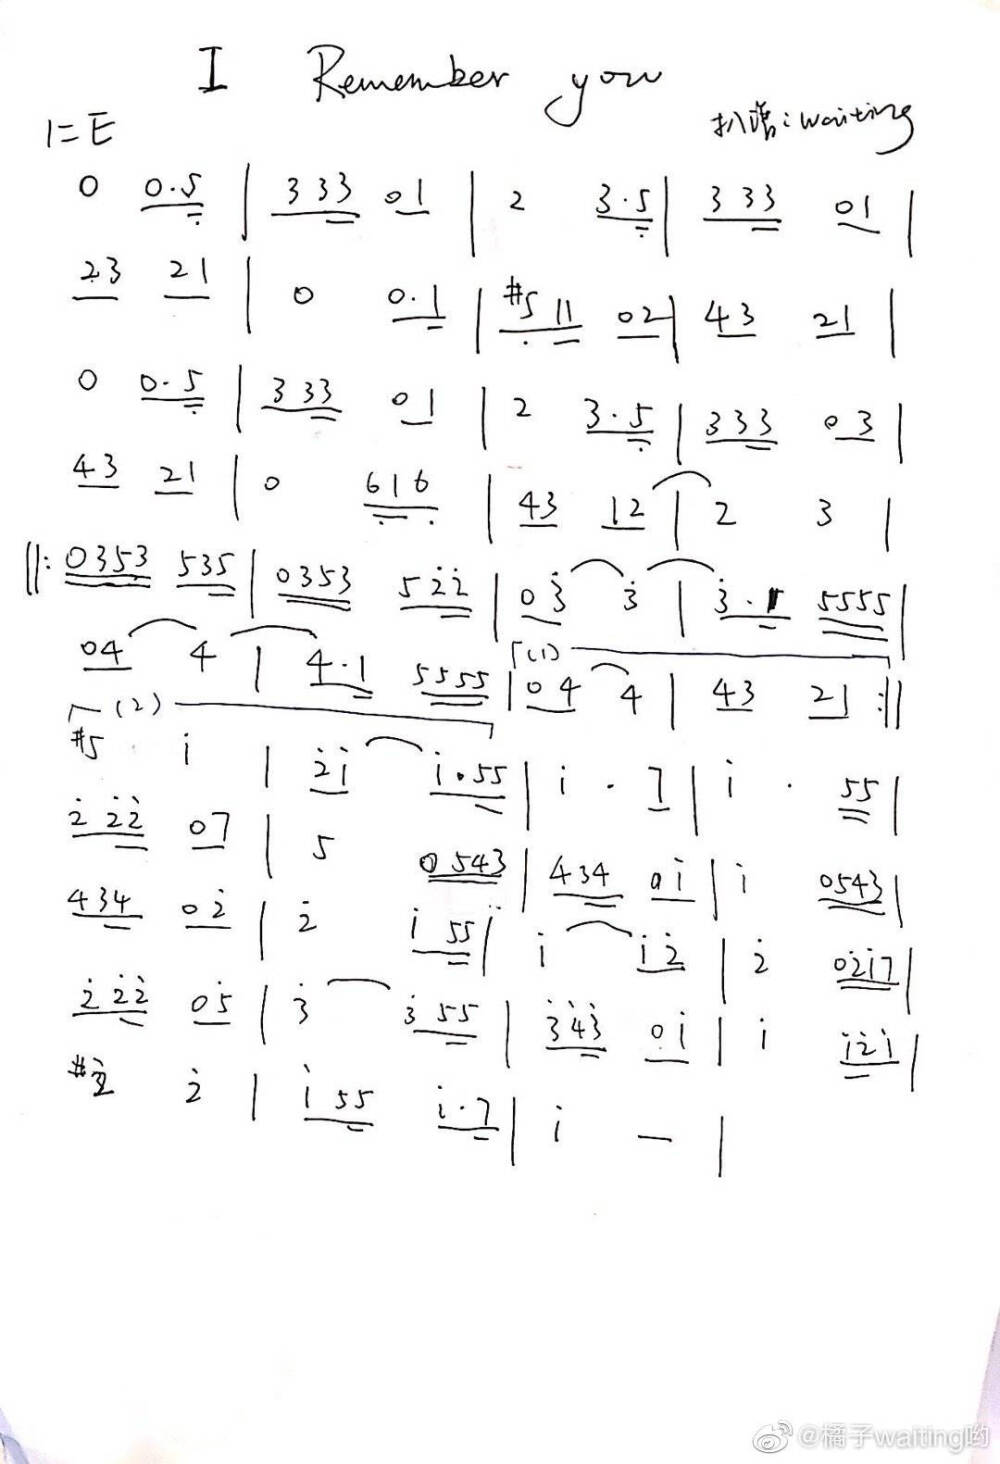 I Remember you
1=E
扒谱:waiting
0 0.5 | 333 01 | 2 3.5 | 333 01 |
23 21 | 0 0.1 | #511 02 | 43 21 |
0 0.5 | 333 01 | 2 3.5 | 333 03 |
43 21 | 0 616 | 43 12 | 2 3 |
||: 0353 535 | 0353 52̇2̇ | 03̇ 3̇ | 3̇. 5555 |
04 4 | 4.1 5555 | 04 4 | 43 21 :||
(1)
(2)
#5 1̇ | 2̇1̇ 1̇.55 | 1̇ . 7 | 1̇ . 55 |
2̇2̇2̇ 07 | 5 0543 | 434 01̇ | 1̇ 0543 |
434 02̇ | 2̇ 1̇55 | 1̇ 1̇2̇ | 2̇ 02̇1̇7 |
2̇2̇2̇ 05 | 3̇ 3̇55 | 3̇4̇3̇ 01̇ | 1̇ 1̇2̇1̇ |
2̇ | 1̇55 1̇.7 | 1̇ — |
@橘子waiting哟